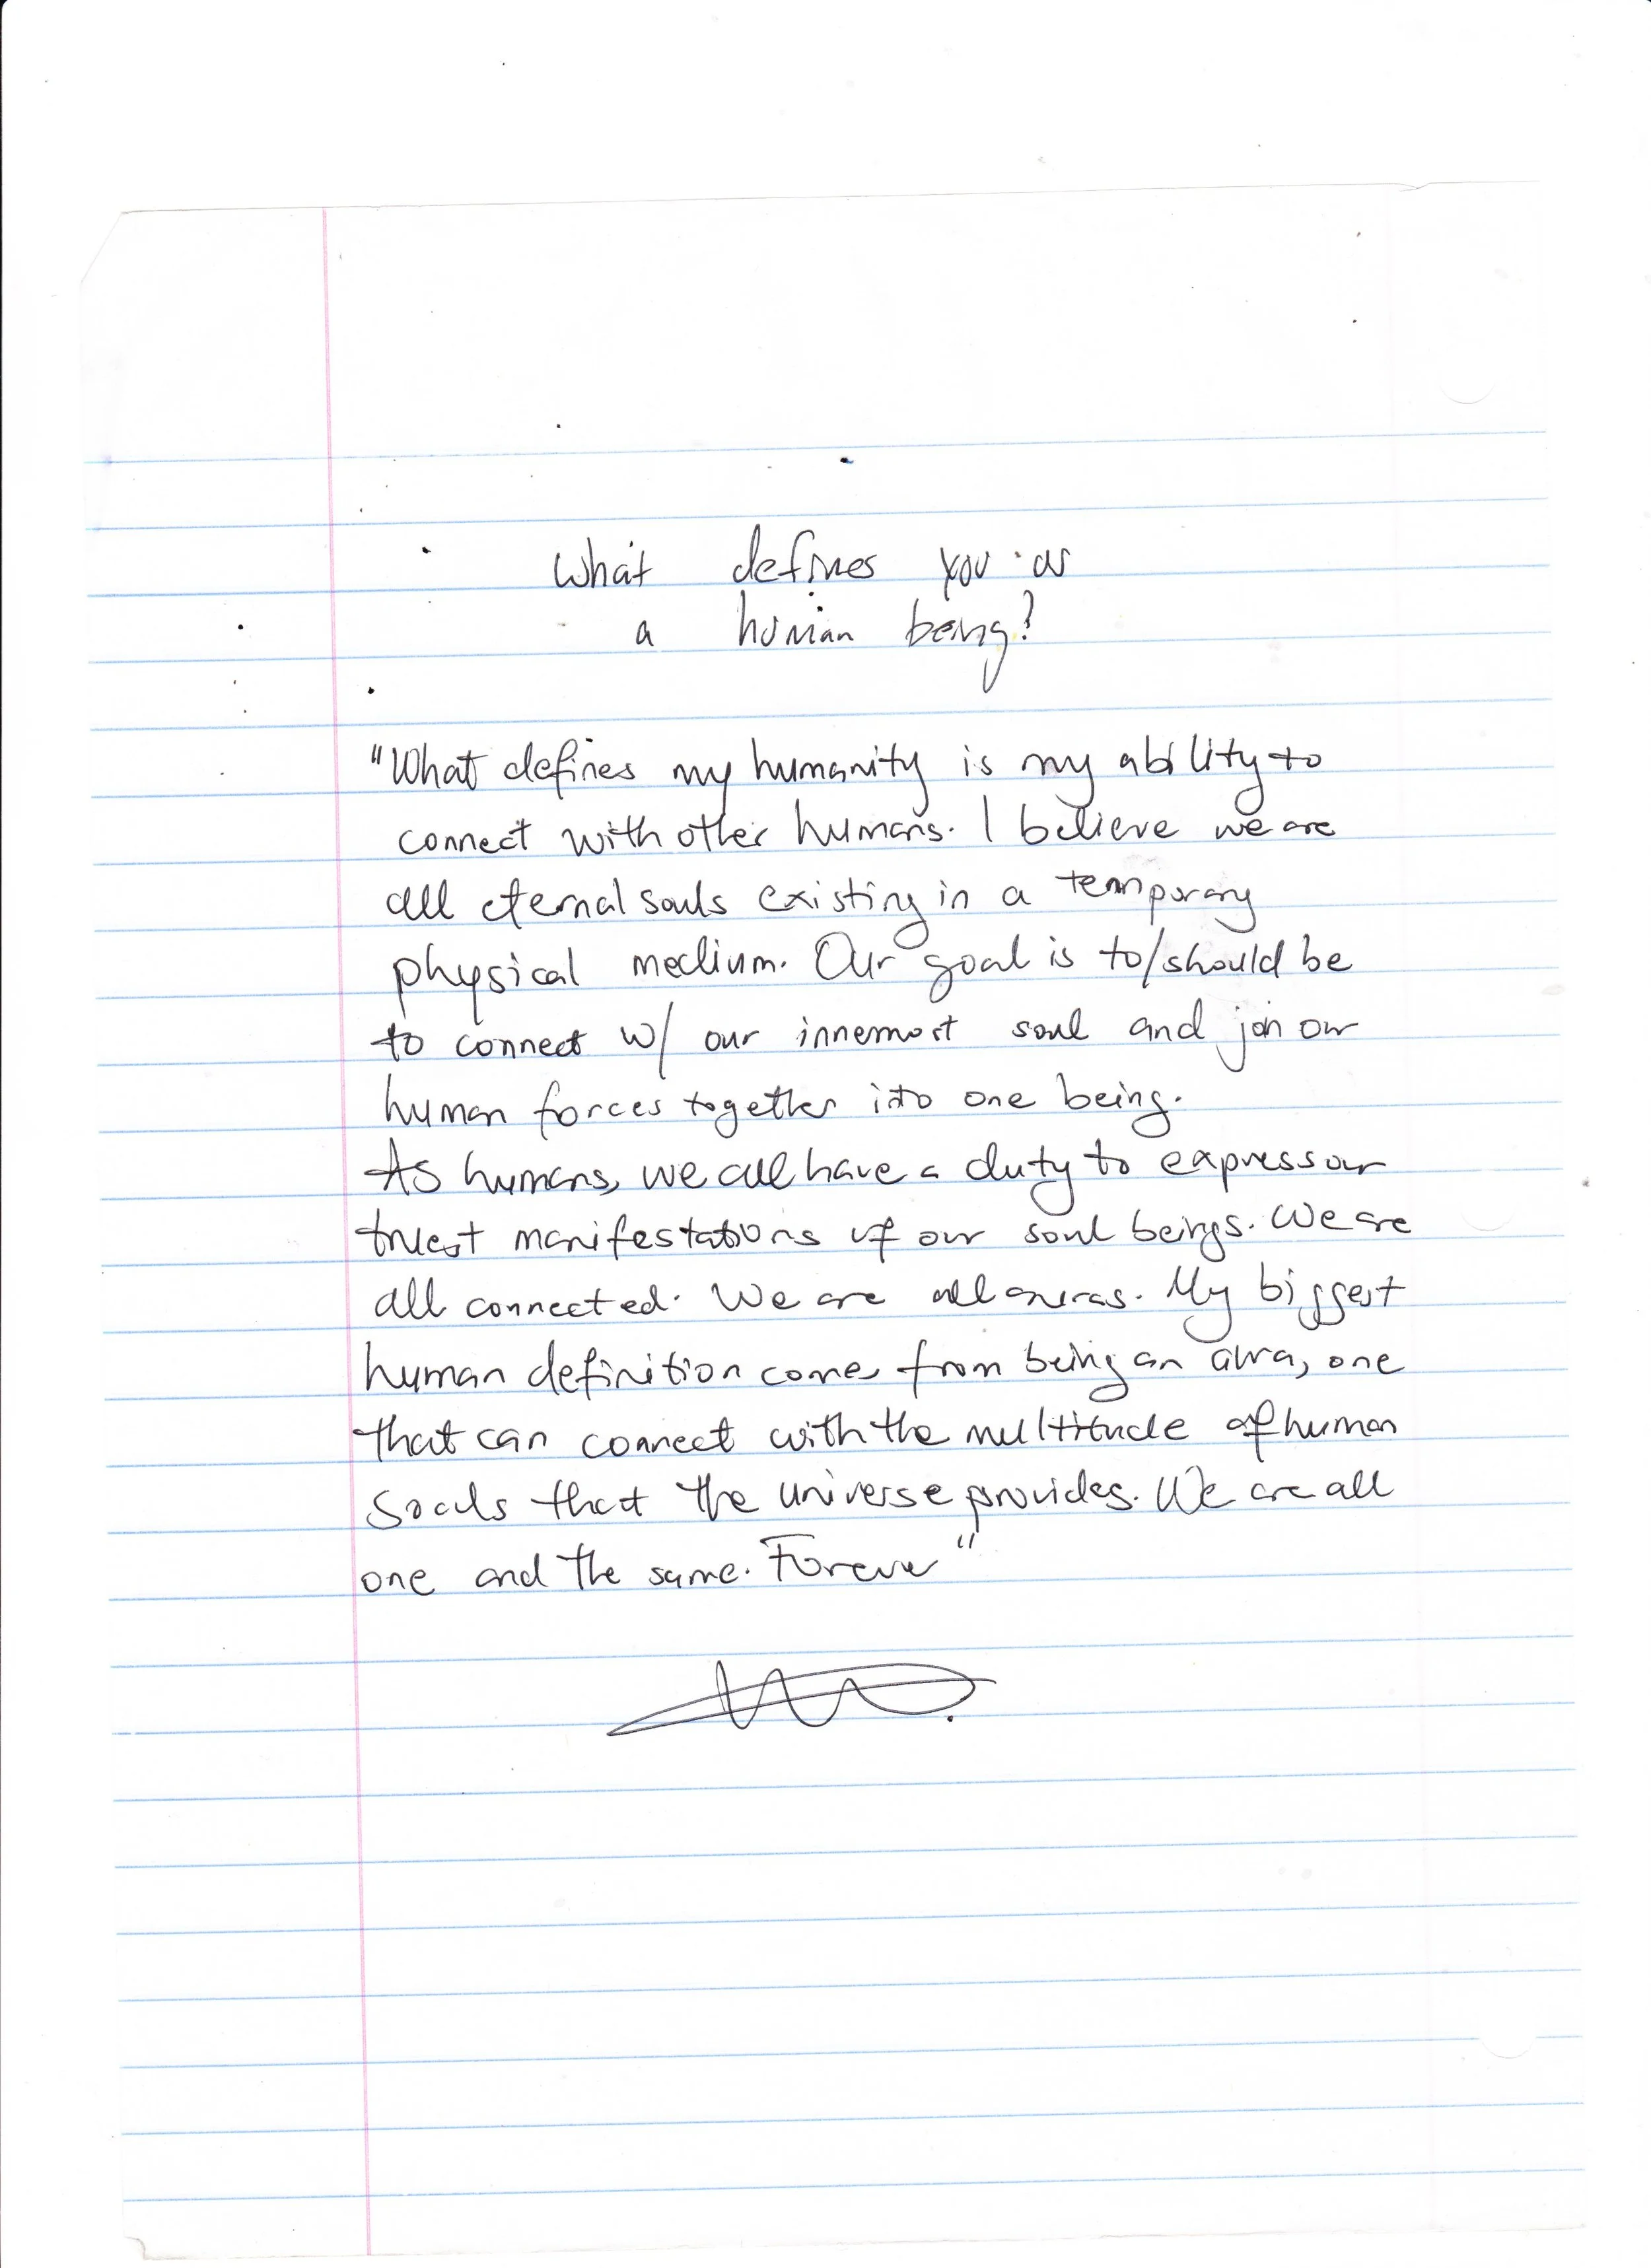 What defines you as
a human being?
"What defines my humanity is my ability to
connect with other humans. I believe we are
all eternal souls existing in a temporary
physical medium. Our goal is to/should be
to connect w/ our innermost soul and join our
human forces together into one being.
As humans, we all have a duty to express our
truest manifestations of our soul beings. We are
all connected. We are all auras. My biggest
human definition comes from being an aura, one
that can connect with the multitude of human
souls that the universe provides. We are all
one and the same. Forever"